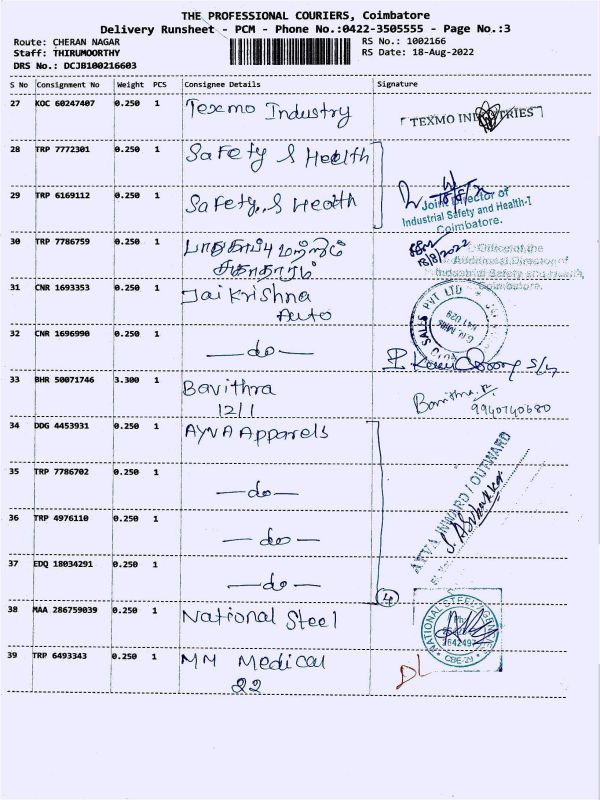 THE PROFESSIONAL COURIERS, Coimbatore
Delivery Runsheet - PCM - Phone No.:0422-3505555 - Page No.:3
Route: CHERAN NAGAR
Staff: THIRUMOORTHY
DRS No.: DCJB100216603
RS No.: 1002166
RS Date: 18-Aug-2022
S No Consignment No Weight PCS Consignee Details Signature
27 KOC 60247407 0.250 1 Texmo Industry
TEXMO INDUSTRIES
28 TRP 7772301 0.250 1 Safety & Health
29 TRP 6169112 0.250 1 Safety & Health
Joint Director of
Industrial Safety and Health-I
Coimbatore.
30 TRP 7786759 0.250 1 பாதுகாப்பு மற்றும்
சுகாதாரம்
18/8/2022
Office of the
Additional Director of
Industrial Safety and Health,
Coimbatore.
31 CNR 1693353 0.250 1 Jai Krishna
Auto
SALES PVT LTD
G.N. Mills
641 029
32 CNR 1696990 0.250 1 —do—
33 BHR 50071746 3.300 1 Bavithra
12/1
Bavithra.R.
9940740680
34 DDG 4453931 0.250 1 AYVA Apparels
35 TRP 7786702 0.250 1 —do—
36 TRP 4976110 0.250 1 —do—
37 EDQ 18034291 0.250 1 —do—
4
AYVA INWARD / OUTWARD
38 MAA 286759039 0.250 1 National Steel
NATIONAL STEEL
CBE-29
39 TRP 6493343 0.250 1 MM Medical
22
DL